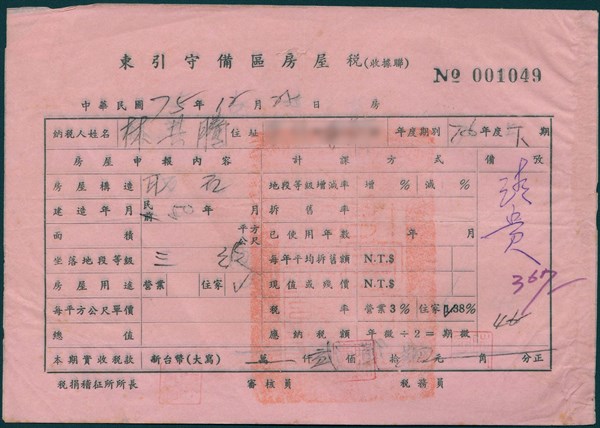 東引守備區房屋稅(收據聯)
No 001049
中華民國 75 年 12 月 日 房
納稅人姓名 林 騰 住址 年度期別 76 年度 下 期
房屋申報內容 計課方式 備攷
房屋構造 地段等級增減率 增 % 減 %
建造年月 民前 年 月 折舊率
面積 平方公尺 已使用年數 年 月
坐落地段等級 三 級 每年平均折舊額 N.T.$
房屋用途 營業 住家 ✓ 現值或殘價 N.T.$
每平方公尺單價 稅率 營業3% 住家1.38%
總值 應納稅額 年徵÷2=期徵
本期實收稅款 新台幣(大寫) 萬 仟 貳 佰 拾 元 角 分正
稅捐稽征所所長 審核員 稅務員
367